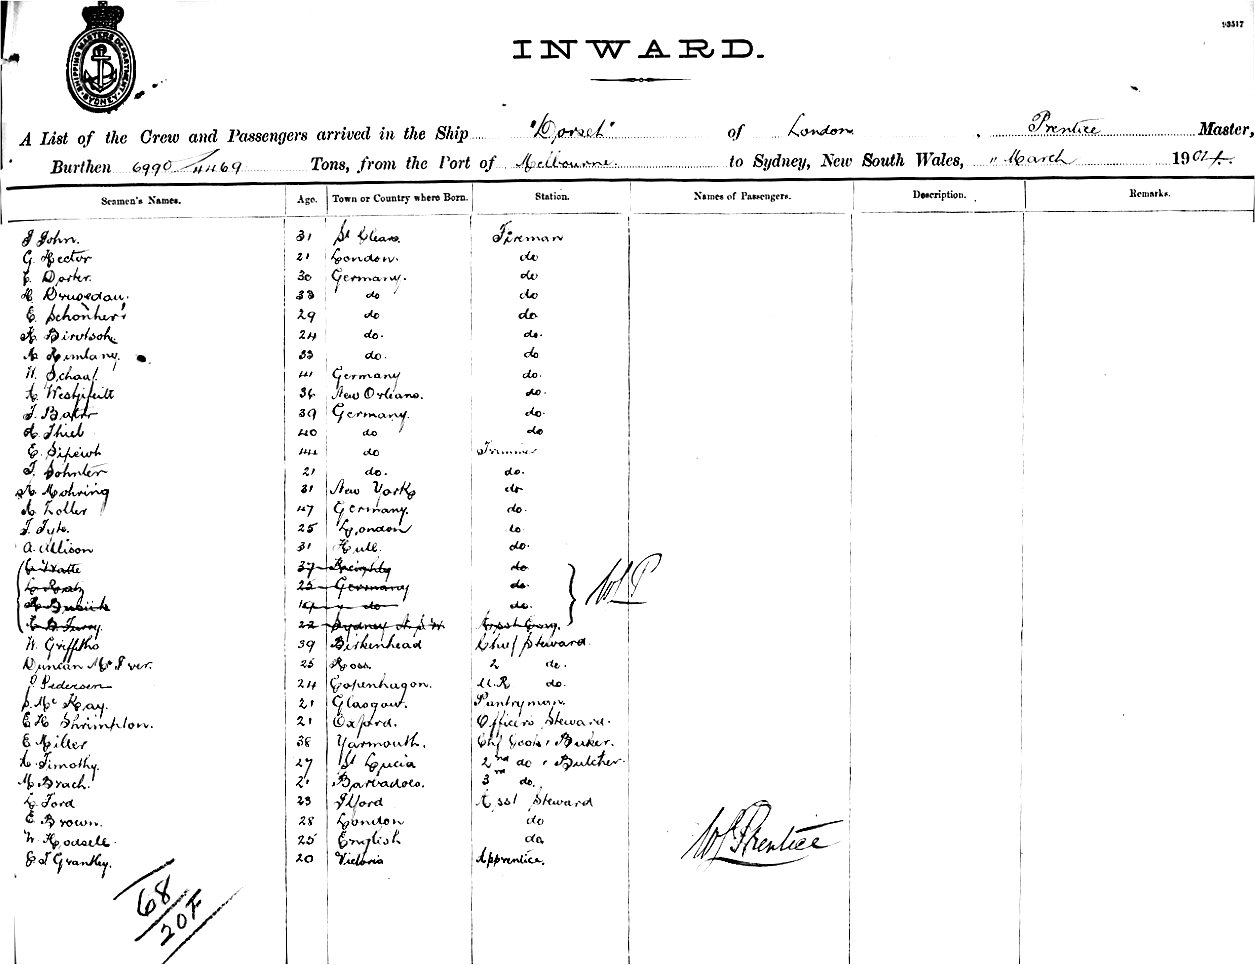 93517
SHIPPING MASTERS DEPARTMENT SYDNEY
INWARD.
A List of the Crew and Passengers arrived in the Ship "Dorset" of London, Prentice Master,
Burthen 6990/4469 Tons, from the Port of Melbourne to Sydney, New South Wales, " March 1904.
Seamen's Names. Age. Town or Country where Born. Station. Names of Passengers. Description. Remarks.
J John. 31 St Clears. Fireman
G. Hector 21 London. do
30 Germany. do
33 do do
29 do do
24 do. do.
33 do. do
W. Schaaf 41 Germany do.
36 New Orleans. do.
39 Germany. do.
A. Thiel 40 do do
44 do Trimmer
21 do. do.
A. Mohring 31 New York do
A. Zoller 47 Germany. do.
25 London do
A. Allison 31 Hull. do.
37 Keighley do
25 Germany do.
do do.
22 Sydney N.S.W. Asst
W.P
W. Griffiths 39 Birkenhead Chief Steward.
Duncan McIver. 25 Ross. 2 do.
Pedersen 24 Copenhagen. M.R do.
McKay. 21 Glasgow. Pantryman.
E H Shrimpton. 21 Oxford. Officers Steward.
E. Miller 38 Yarmouth. Chf Cook & Baker.
A. Timothy. 27 St Lucia 2nd do & Butcher.
M. Brach. 21 Barbadoes. 3rd do.
L. Ford 23 Ilford Asst Steward
E. Brown. 28 London do
W. Hodsell. 25 English do.
Grantley. 20 Victoria Apprentice.
W P Prentice
68
20F